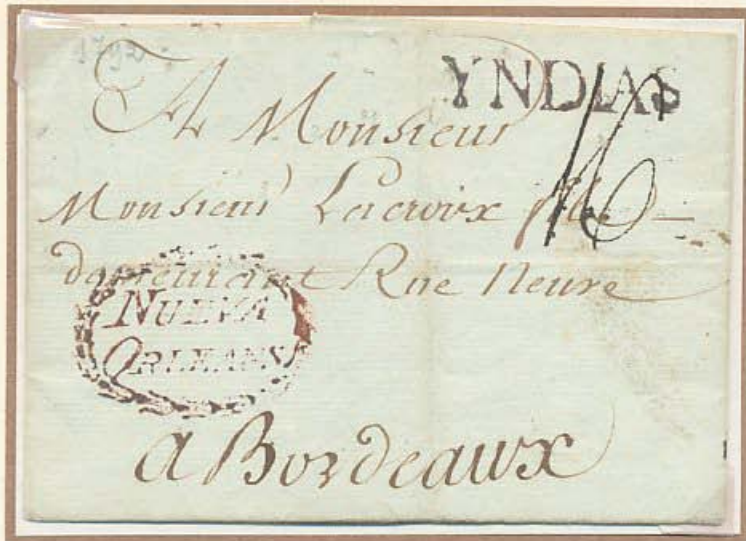 1792
YNDIAS
A Monsieur
16
Monsieur Lacroix fils
demeurant Rue Neuve
NUEVA
ORLEANS
a Bordeaux